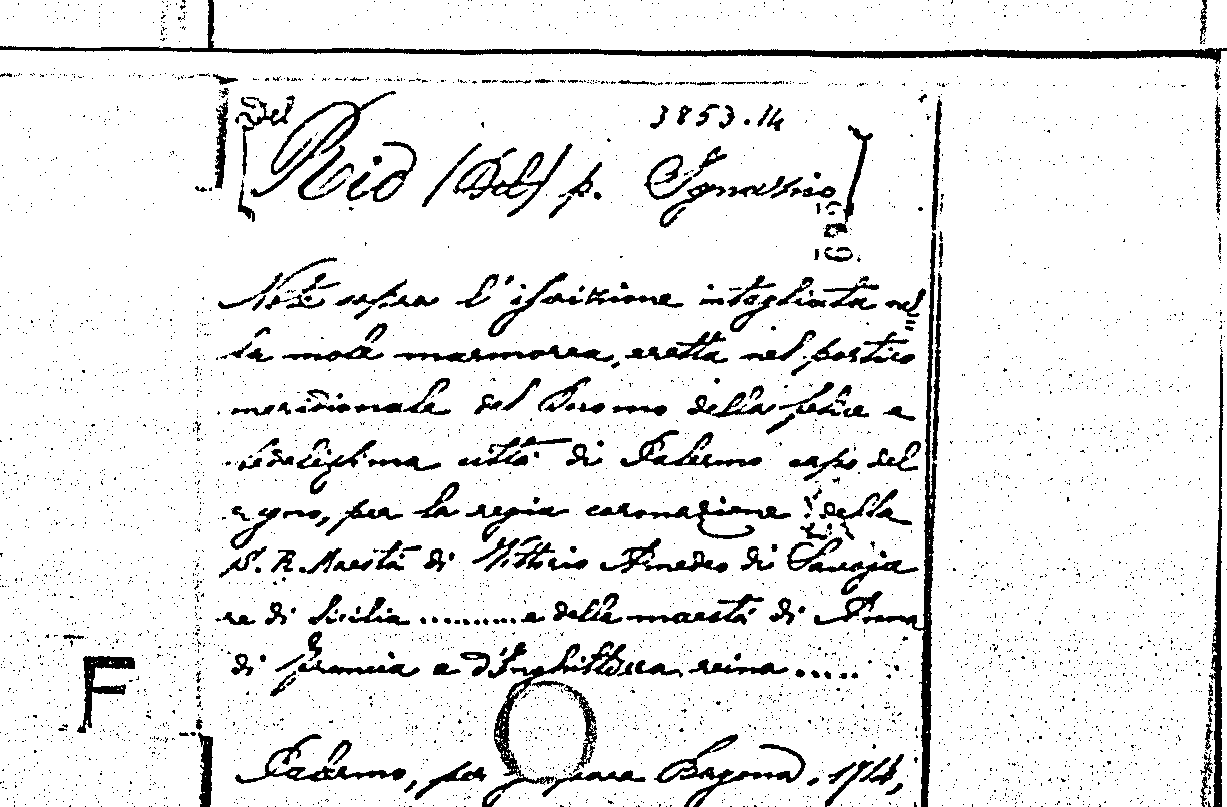 Del
3853.14
[Rio (Del) p. Ignazio]
Note sopra l'iscrizione intagliata nel=
la mole marmorea, eretta nel portico
meridionale del Duomo della felice e
fedelissima città di Palermo capo del
regno, per la regia coronazione della
S. R. Maestà di Vittorio Amedeo di Savoja
re di Sicilia .........e della maestà di Anna
di Francia e d'Inghilterra reina .....
F
Palermo, per Bayona, 1714,